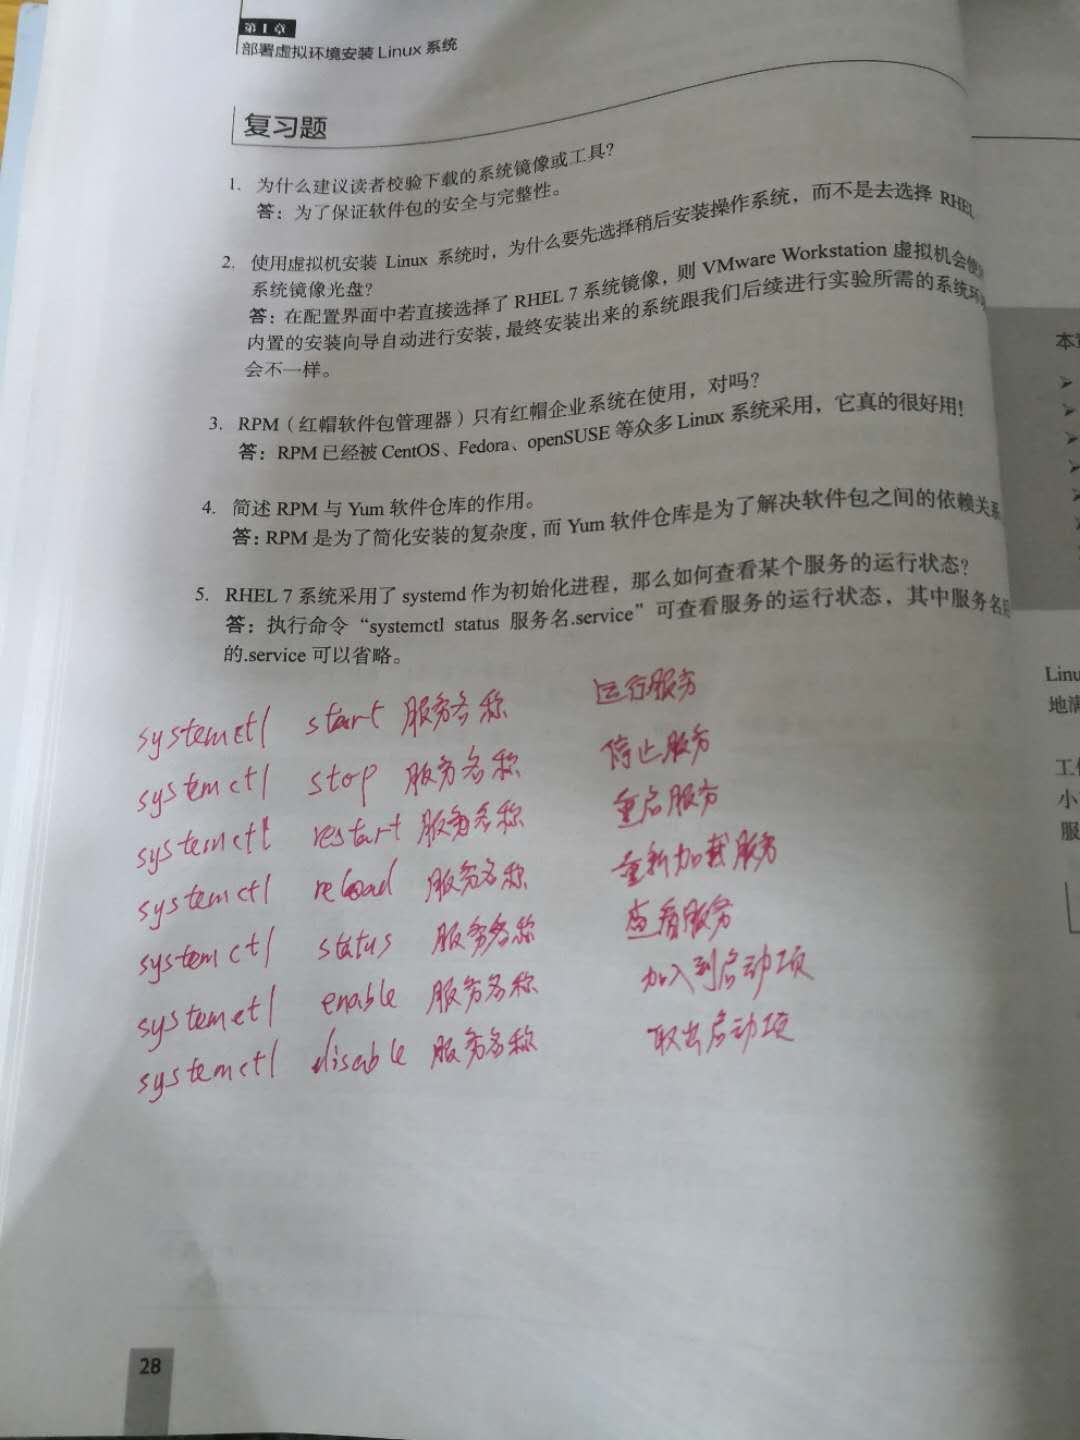 第1章
部署虚拟环境安装 Linux 系统
复习题
1. 为什么建议读者校验下载的系统镜像或工具?
答：为了保证软件包的安全与完整性。
2. 使用虚拟机安装 Linux 系统时，为什么要先选择稍后安装操作系统，而不是去选择 RHEL
系统镜像光盘?
答：在配置界面中若直接选择了 RHEL 7 系统镜像，则 VMware Workstation 虚拟机会使用
内置的安装向导自动进行安装，最终安装出来的系统跟我们后续进行实验所需的系统环
会不一样。
3. RPM（红帽软件包管理器）只有红帽企业系统在使用，对吗?
答：RPM 已经被 CentOS、Fedora、openSUSE 等众多 Linux 系统采用，它真的很好用!
4. 简述 RPM 与 Yum 软件仓库的作用。
答：RPM 是为了简化安装的复杂度，而 Yum 软件仓库是为了解决软件包之间的依赖关系
5. RHEL 7 系统采用了 systemd 作为初始化进程，那么如何查看某个服务的运行状态?
答：执行命令“systemctl status 服务名.service”可查看服务的运行状态，其中服务名后
的.service 可以省略。
systemctl start 服务名称 运行服务
systemctl stop 服务名称 停止服务
systemctl restart 服务名称 重启服务
systemctl reload 服务名称 重新加载服务
systemctl status 服务名称 查看服务
systemctl enable 服务名称 加入到启动项
systemctl disable 服务名称 取出启动项
28
本章
Linu
地满
工作
小
服